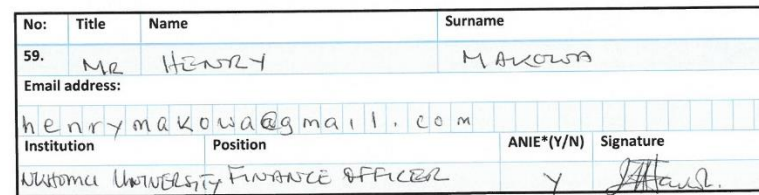 No: Title Name Surname
59. MR HENRY MAKOWA
Email address:
henrymakowa@gmail.com
Institution Position ANIE*(Y/N) Signature
UNIVERSITY FINANCE OFFICER Y